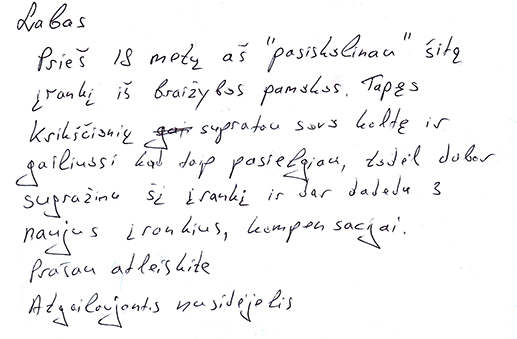 Labas
Prieš 18 metų aš "pasiskolinau" šitą
įrankį iš braižybos pamokos. Tapęs
Krikščionių supratau savo kaltę ir
gailiuosi kad taip pasielgiau, todėl dabar
sugražinu šį įrankį ir dar dadedu 3
naujus įrankius, kompensacijai.
Prašau atleiskite
Atgailaujantis nusidėjėlis